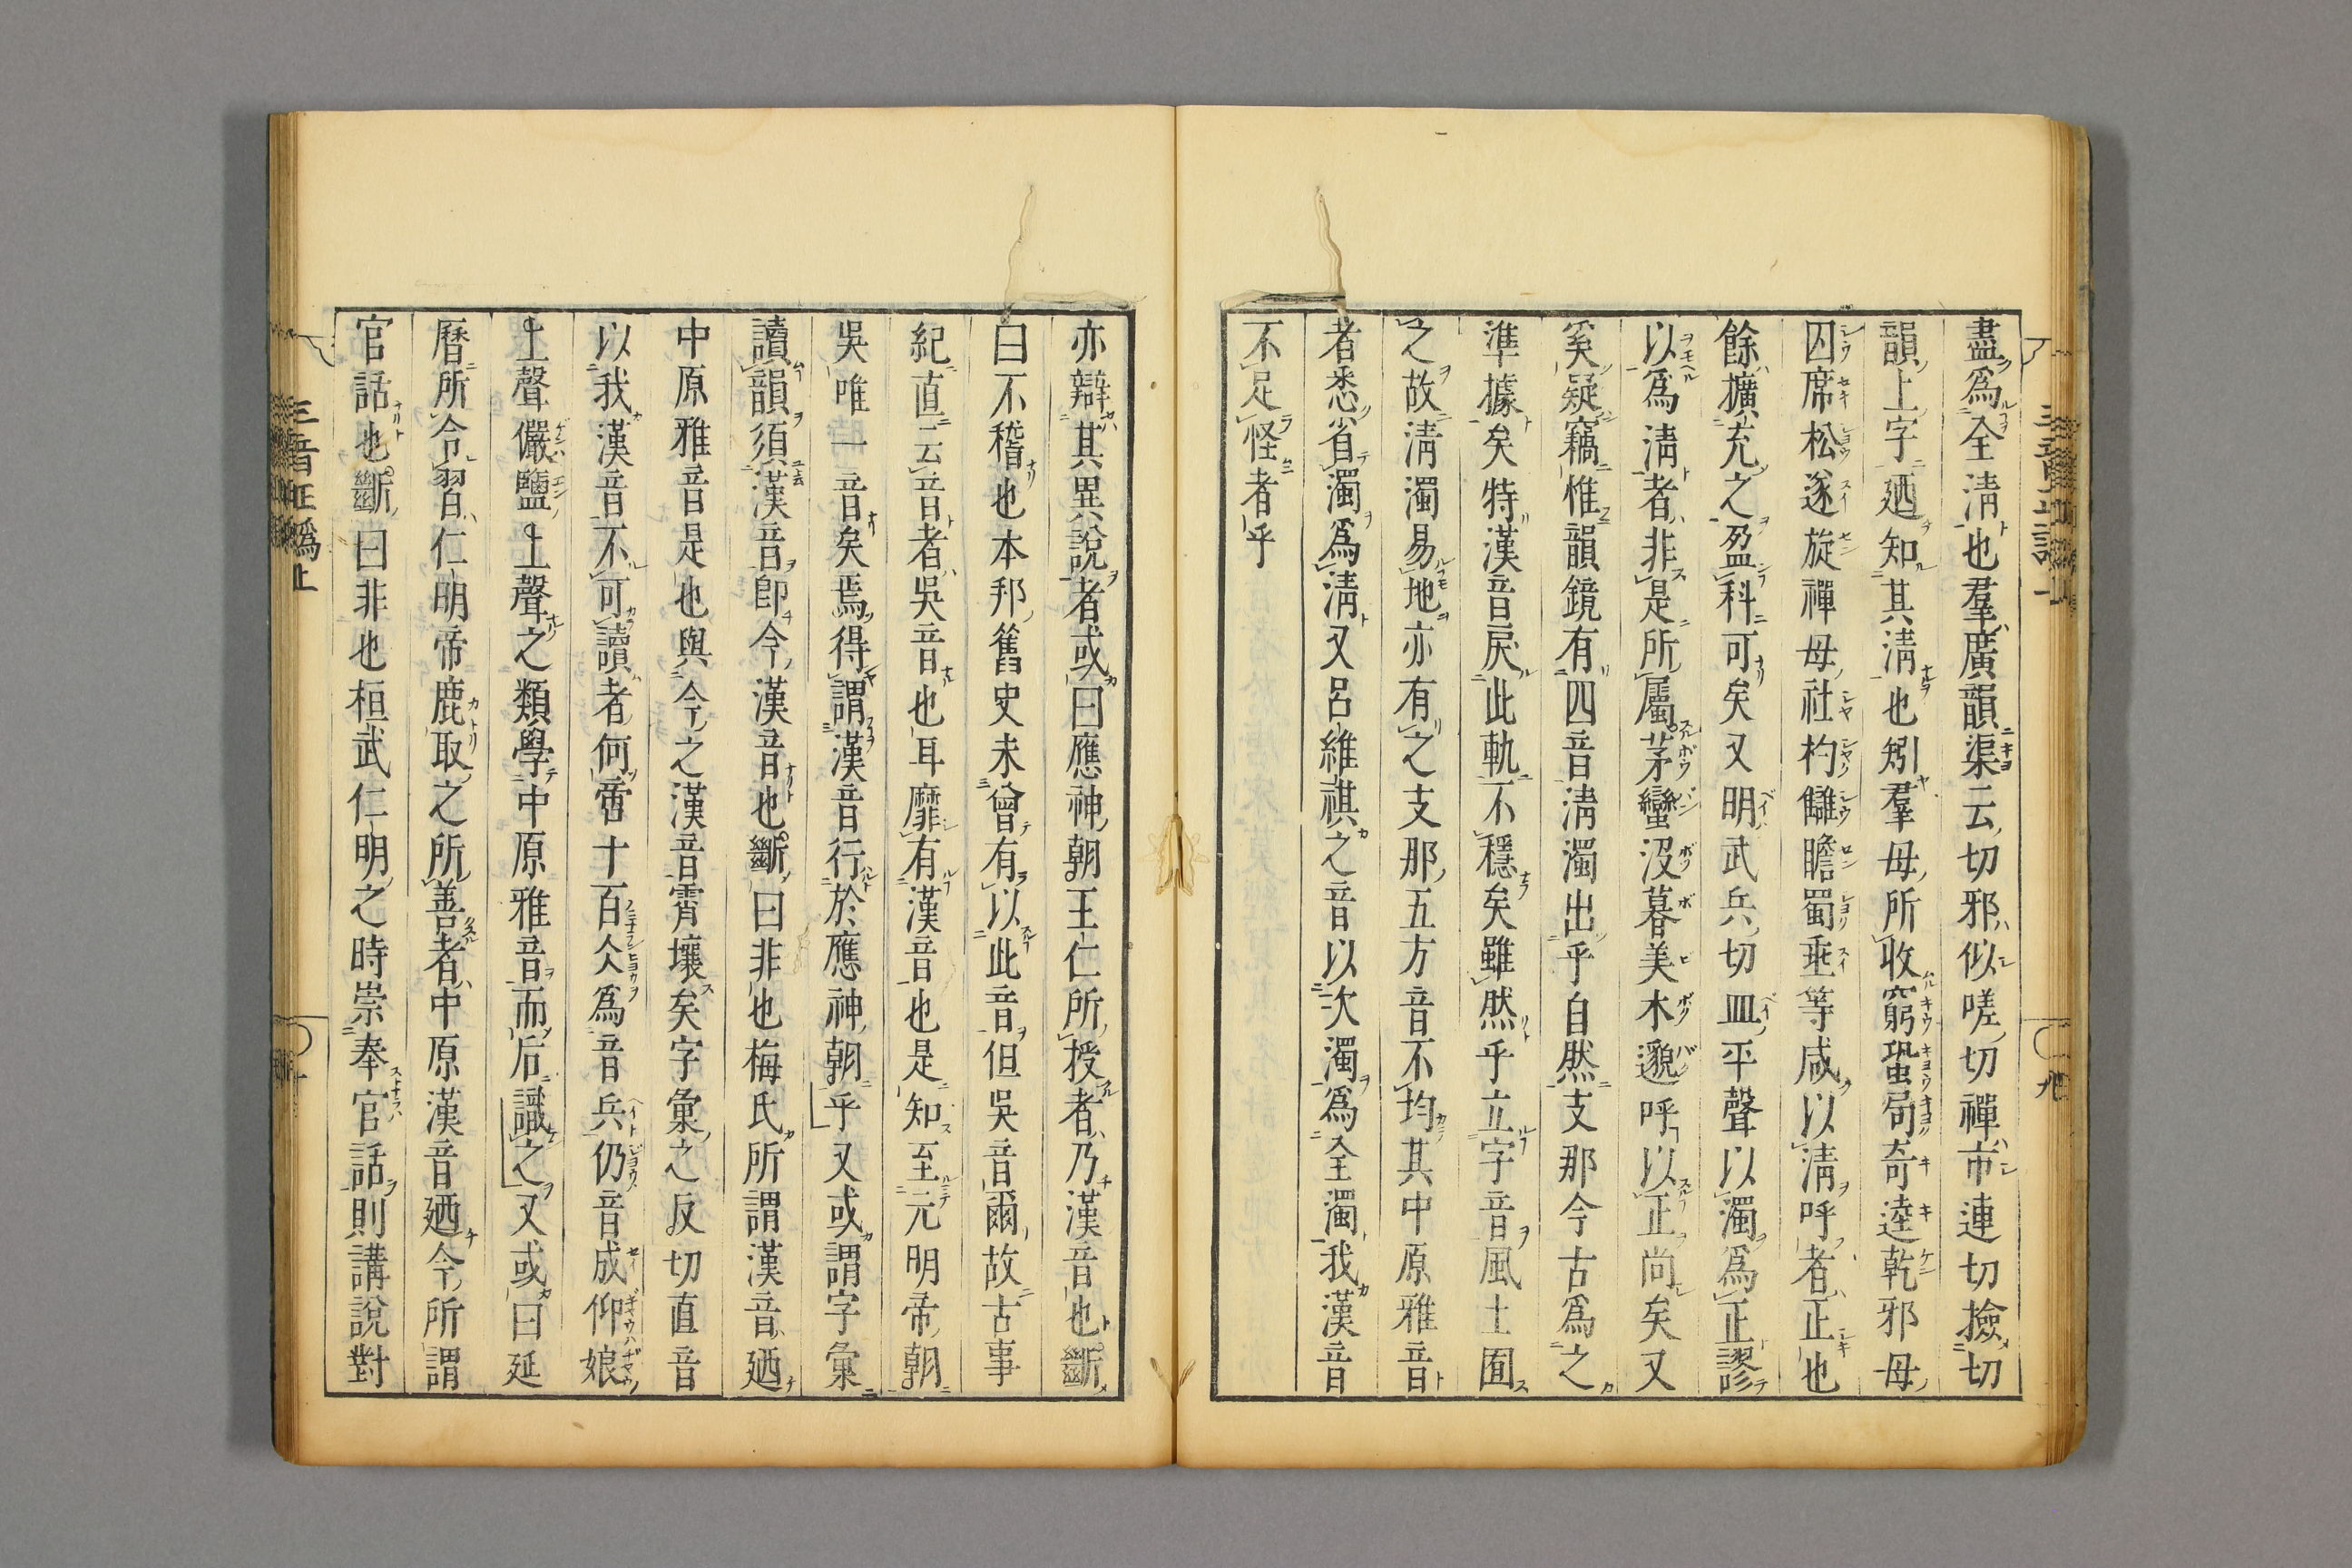 盡爲全淸也羣廣韻渠云切邪似嗟切禪市連切撿切
韻上字廼知其淸也矧羣母所收窮蛩局奇逵乾邪母
囚席松遂旋禪母社杓讎瞻蜀垂等咸以淸呼者正也
餘擴充之盈科可矣又明武兵切皿平聲以濁爲正謬
以爲淸者非是所屬茅蠻沒暮美木邈呼以正尚矣又
奚疑竊惟韻鏡有四音淸濁出乎自然支那今古爲之
準據矣特漢音戾此軌不穩矣雖然乎立字音風土囿
之故淸濁易地亦有之支那五方音不均其中原雅音
者悉省濁爲淸又呂維祺之音以次濁爲全濁我漢音
不足怪者乎
三音正譌上
九
亦辯其異說者或曰應神朝王仁所授者乃漢音也斷
曰不稽也本邦舊史未曾有以此音但吳音爾故古事
紀直云音者吳音也耳靡有漢音也是知至元明帝朝
吳唯一音矣焉得謂漢音行於應神朝乎又或謂字彙
讀韻須漢音卽今漢音也斷曰非也梅氏所謂漢音廼
中原雅音是也與今之漢音霄壤矣字彙之反切直音
以我漢音不可讀者何啻十百仌爲音兵仍音成仰娘
上聲儼鹽上聲之類學中原雅音而后識之又或曰延
曆所令習仁明帝鹿取之所善者中原漢音廼今所謂
官話也斷曰非也桓武仁明之時崇奉官話則講說對
三音正譌上
十